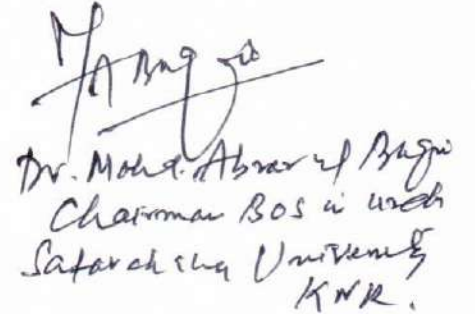 Dr. Mohd. Abrar ul Baqui
Chairman BOS in Urdu
Satavahana University
KNR.